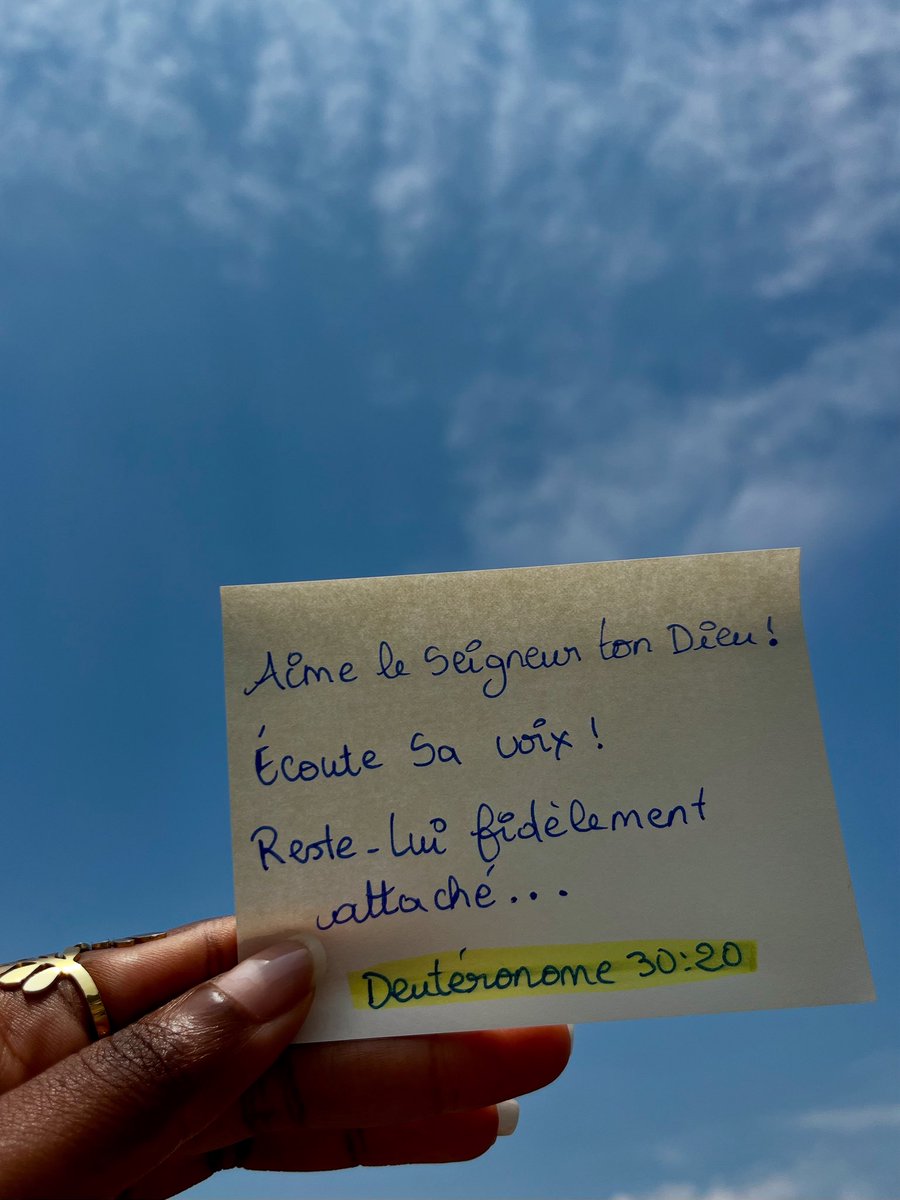 Aime le Seigneur ton Dieu!
Écoute Sa voix !
Reste-Lui fidèlement
attaché...
Deutéronome 30:20